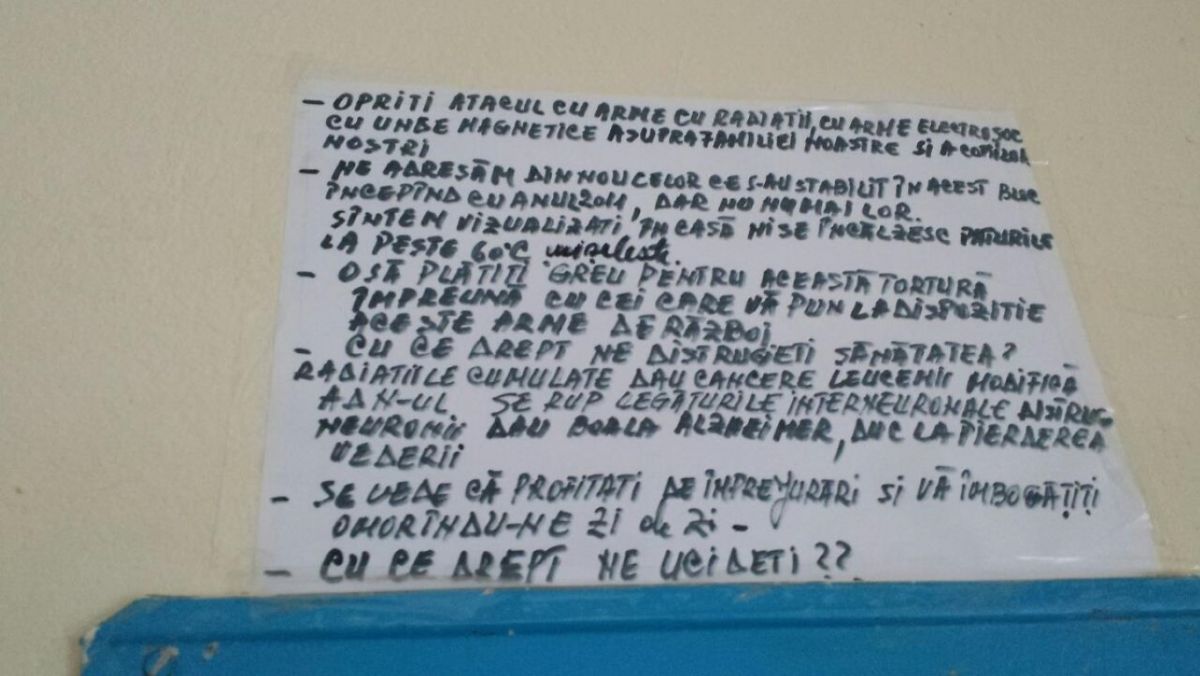 - OPRITI ATACUL CU ARME CU RADIATII, CU ARME ELECTROȘOC
CU UNDE MAGNETICE ASUPRA FAMILIEI NOASTRE SI A COPIILOR
NOSTRI
- NE ADRESĂM DIN NOU CELOR CE S-AU STABILIT ÎN ACEST BLOC
ÎNCEPÎND CU ANUL 2011, DAR NU NUMAI LOR.
SÎNTEM VIZUALIZATI, ÎN CASĂ NI SE ÎNCĂLZESC PATURILE
LA PESTE 60°C
- O SĂ PLĂTIȚI GREU PENTRU ACEASTĂ TORTURĂ
ÎMPREUNĂ CU CEI CARE VĂ PUN LA DISPOZITIE
ACESTE ARME DE RĂZBOI
- CU CE DREPT NE DISTRUGETI SĂNĂTATEA?
RADIATIILE CUMULATE DAU CANCERE LEUCEMII MODIFICĂ
ADN-UL SE RUP LEGĂTURILE INTERNEURONALE DISTRUG
NEURONII DAU BOALA ALZHEIMER, DUC LA PIERDEREA
VEDERII
- SE VEDE CĂ PROFITATI DE ÎMPREJURARI SI VĂ ÎMBOGĂȚIȚI
OMORÎNDU-NE ZI de Zi -
- CU CE DREPT NE UCIDETI??